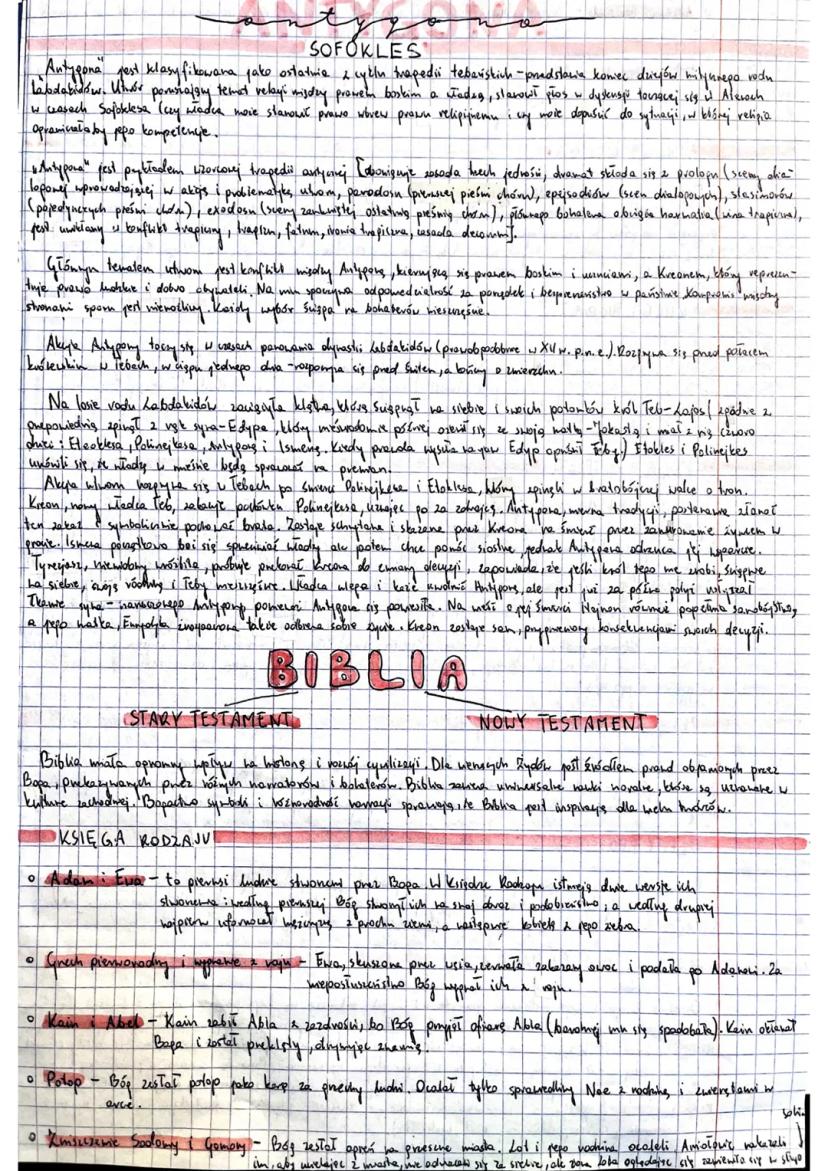 antygona
SOFOKLES
"Antygona" jest klasyfikowana jako ostatnia z cyklu tragedii tebańskich - przedstawia koniec dziejów mitycznego rodu
Labdakidów. Utwór poruszający temat relacji między prawem boskim a władzą, stanowił głos w dyskusji toczącej się w Atenach
w czasach Sofoklesa (czy władca może stanowić prawo wbrew prawu religijnemu i czy może dopuścić do sytuacji, w której religia
ograniczałaby jego kompetencje.
"Antygona" jest przykładem wzorcowej tragedii antycznej [obowiązuje zasada trzech jedności, dramat składa się z prologu (sceny dia-
logowej wprowadzającej w akcję i problematykę utworu, parodosu (pierwszej pieśni chóru), epejsodiów (scen dialogowych), stasimonów
(pojedynczych pieśni chóru), exodosu (sceny zamkniętej ostatnią pieśnią chóru), głównego bohatera obciąża hamartia (wina tragiczna),
jest uwikłany w konflikt tragiczny, tragizm, fatum, ironia tragiczna, zasada decorum].
Głównym tematem utworu jest konflikt między Antygoną, kierującą się prawem boskim i uczuciami, a Kreonem, który reprezen-
tuje prawo ludzkie i dobro obywateli. Na nim spoczywa odpowedzialność za porządek i bezpieczeństwo w państwie. Kompromis między
stronami sporu jest niemożliwy. Każdy wybór ściąga na bohaterów nieszczęsne.
Akcja Antygony toczy się w czasach panowania dynastii Labdakidów (prawdopodobnie w XIV w. p.n.e.). Rozgrywa się przed pałacem
królewskim w Tebach, w ciągu jednego dnia - rozpoczyna się przed świtem, a kończy o zmierzchu.
Na losie rodu Labdakidów zaciążyła klątwa, którą ściągnął na siebie i swoich potomków król Teb - Lajos (zgodnie z
przepowiednią zginął z rąk syna - Edypa, który nieświadomie później ożenił się ze swoją matką - Jokastą i miał z nią czworo
dzieci: Eteoklesa, Polinejkesa, Antygonę i Ismenę. Kiedy prawda wyszła na jaw Edyp opuścił Teby.) Etokles i Polinejkes
umówili się, że władzę w mieście będą sprawować na przemian.
Akcja utworu rozgrywa się w Tebach po śmierci Polinejkesa i Etoklesa, którzy zginęli w bratobójczej walce o tron.
Kreon, nowy władca Teb, zakazuje pochówku Polinejkesa, uznając go za zdrajcę. Antygona, wierna tradycji, postanawia złamać
ten zakaz i symbolicznie pochować brata. Zostaje schwytana i skazana przez Kreona na śmierć przez zamurowanie żywcem w
grocie. Ismena początkowo boi się sprzeciwić władzy ale potem chce pomóc siostrze, jednak Antygona odrzuca jej wsparcie.
Tyrezjasz, niewidomy wróżbita, próbuje przekonać Kreona do zmiany decyzji, zapowiada, że jeśli król tego nie zrobi, ściągnie
na siebie, swoją rodzinę i Teby nieszczęście. Władca ulega i każe uwolnić Antygonę, ale jest już za późno, gdyż
Antygona się powiesiła. Na wieść o jej śmierci Hajmon również popełnia samobójstwo,
a jego matka, Eurydyka zrozpaczona także odbiera sobie życie. Kreon zostaje sam, przygnieciony konsekwencjami swoich decyzji.
BIBLIA
STARY TESTAMENT
NOWY TESTAMENT
Biblia miała ogromny wpływ na historię i rozwój cywilizacji. Dla wierzących Żydów jest źródłem prawd objawionych przez
Boga, przekazywanych przez różnych narratorów i bohaterów. Biblia zawiera uniwersalne nauki moralne, które są uznawane w
kulturze zachodniej. Bogactwo symboli i różnorodność narracji sprawiają, że Biblia jest inspiracją dla wielu twórców.
KSIĘGA RODZAJU
• Adam i Ewa - to pierwsi ludzie stworzeni przez Boga. W Księdze Rodzaju istnieją dwie wersje ich
stworzenia: według pierwszej Bóg stworzył ich na swój obraz i podobieństwo, a według drugiej
najpierw uformował mężczyznę z prochu ziemi, a następnie kobietę z jego żebra.
• Grzech pierworodny i wygnanie z raju - Ewa, skuszona przez węża, zerwała zakazany owoc i podała go Adamowi. Za
nieposłuszeństwo Bóg wygnał ich z raju.
• Kain i Abel - Kain zabił Abla z zazdrości, bo Bóg przyjął ofiarę Abla (bardziej mu się spodobała). Kain okłamał
Boga i został przeklęty, otrzymując znamię.
• Potop - Bóg zesłał potop jako karę za grzechy ludzi. Ocalał tylko sprawiedliwy Noe z rodziną i zwierzętami w
arce.
• Zniszczenie Sodomy i Gomory - Bóg zesłał ogień na grzeszne miasta. Lot i jego rodzina ocaleli. Aniołowie nakazali
im, aby uciekając z miasta, nie odwracali się za siebie, ale żona Lota oglądając się zamieniła się w słup
soli.